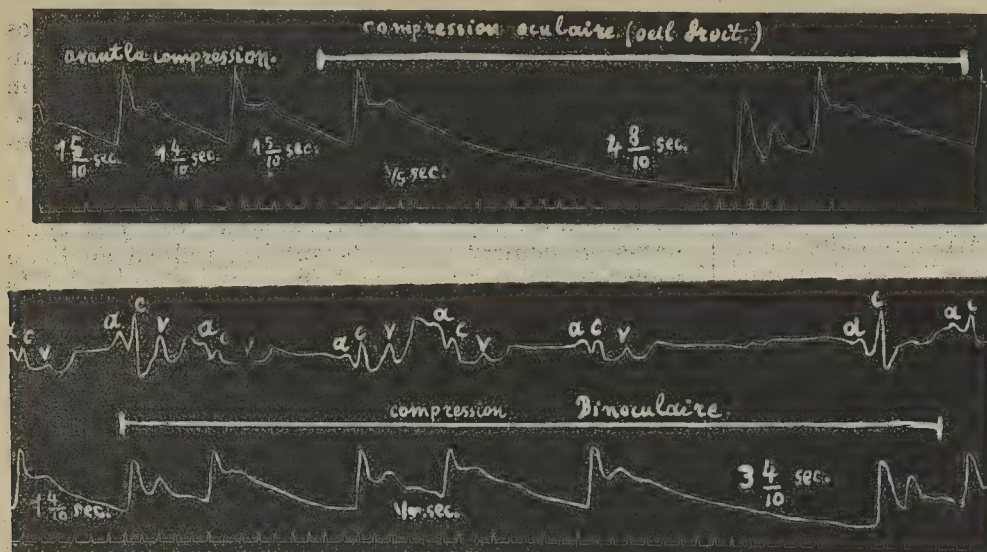 compression oculaire (oeil droit.)
avant la compression.
1 5/10 sec. 1 4/10 sec. 1 5/10 sec. 1/5 sec. 4 8/10 sec.
a c v a c v a c v a c v a c v a c a c
compression Binoculaire
1 4/10 sec. sec. 3 4/10 sec.